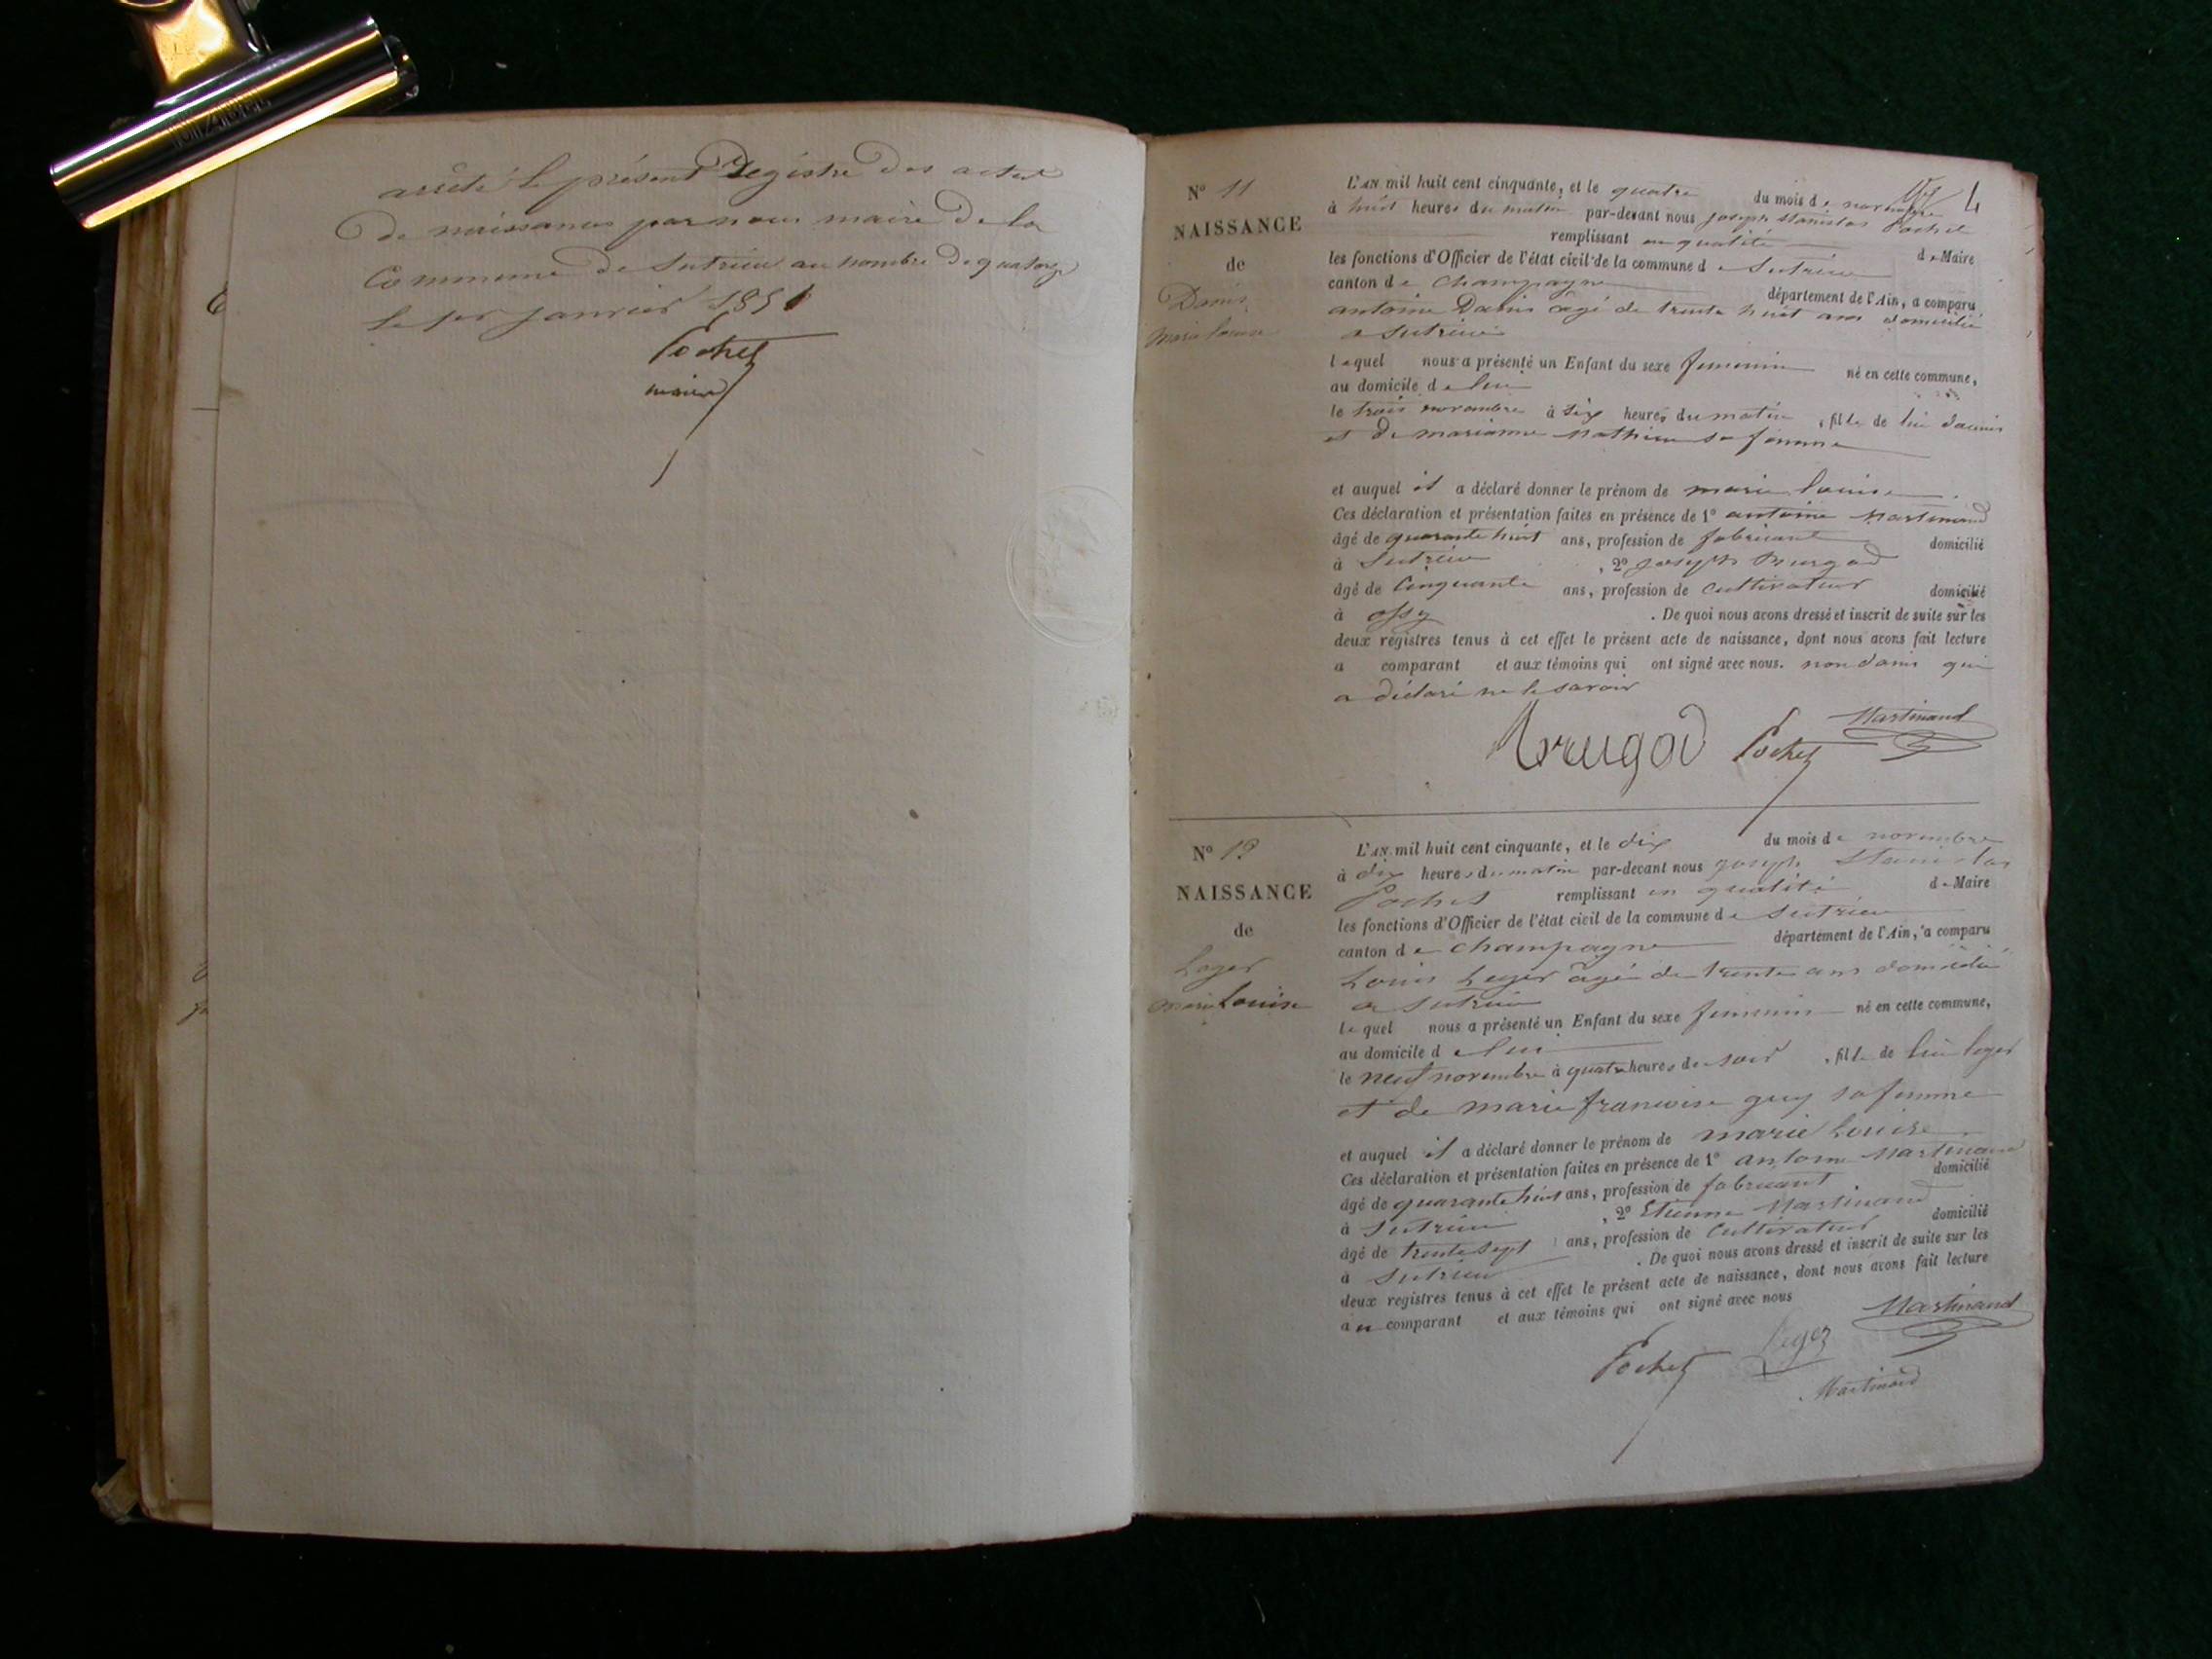 arrêté le présent Registre des actes
de naissances par nous maire de la
Commune de Sutrieu au nombre de quatorze
le 1er janvier 1851
Pochet
maire
N° 11
NAISSANCE
de
Danis
marie louise
4
L'AN mil huit cent cinquante, et le quatre du mois de novembre
à huit heures du matin par-devant nous joseph stanislas Pochet
remplissant en qualité de Maire
les fonctions d'Officier de l'état civil de la commune de Sutrieu
canton de Champagne département de l'Ain, a comparu
antoine Danis âgé de trente huit ans domicilié
a Sutrieu
lequel nous a présenté un Enfant du sexe feminin né en cette commune,
au domicile de lui
le trois novembre à six heures du matin, fille de lui danis
et de marianne Mathieu sa femme
et auquel il a déclaré donner le prénom de marie louise
Ces déclaration et présentation faites en présence de 1° antoine Martinand
âgé de quarante huit ans, profession de fabricant domicilié
à Sutrieu, 2° joseph Brugod
âgé de Cinquante ans, profession de cultivateur domicilié
à ossy. De quoi nous avons dressé et inscrit de suite sur les
deux registres tenus à cet effet le présent acte de naissance, dont nous avons fait lecture
a comparant et aux témoins qui ont signé avec nous. non danis qui
a déclaré ne le savoir
Brugod Pochet Martinand
N° 12
NAISSANCE
de
Leger
marie Louise
L'AN mil huit cent cinquante, et le dix du mois de novembre
à dix heures du matin par-devant nous joseph Stanislas
Pochet remplissant en qualité de Maire
les fonctions d'Officier de l'état civil de la commune de Sutrieu
canton de Champagne département de l'Ain, a comparu
Louis Leger âgé de trente ans domicilié
a Sutrieu
lequel nous a présenté un Enfant du sexe feminin né en cette commune,
au domicile de lui
le neuf novembre à quatre heures du soir, fille de lui leger
et de marie francoise guy sa femme
et auquel il a déclaré donner le prénom de marie Louise
Ces déclaration et présentation faites en présence de 1° antoine Martinand
âgé de quarante huit ans, profession de fabricant domicilié
à Sutrieu, 2° Etienne Martinand
âgé de trente sept ans, profession de Cultivateur domicilié
à Sutrieu. De quoi nous avons dressé et inscrit de suite sur les
deux registres tenus à cet effet le présent acte de naissance, dont nous avons fait lecture
au comparant et aux témoins qui ont signé avec nous
Pochet Leger Martinand
Martinand